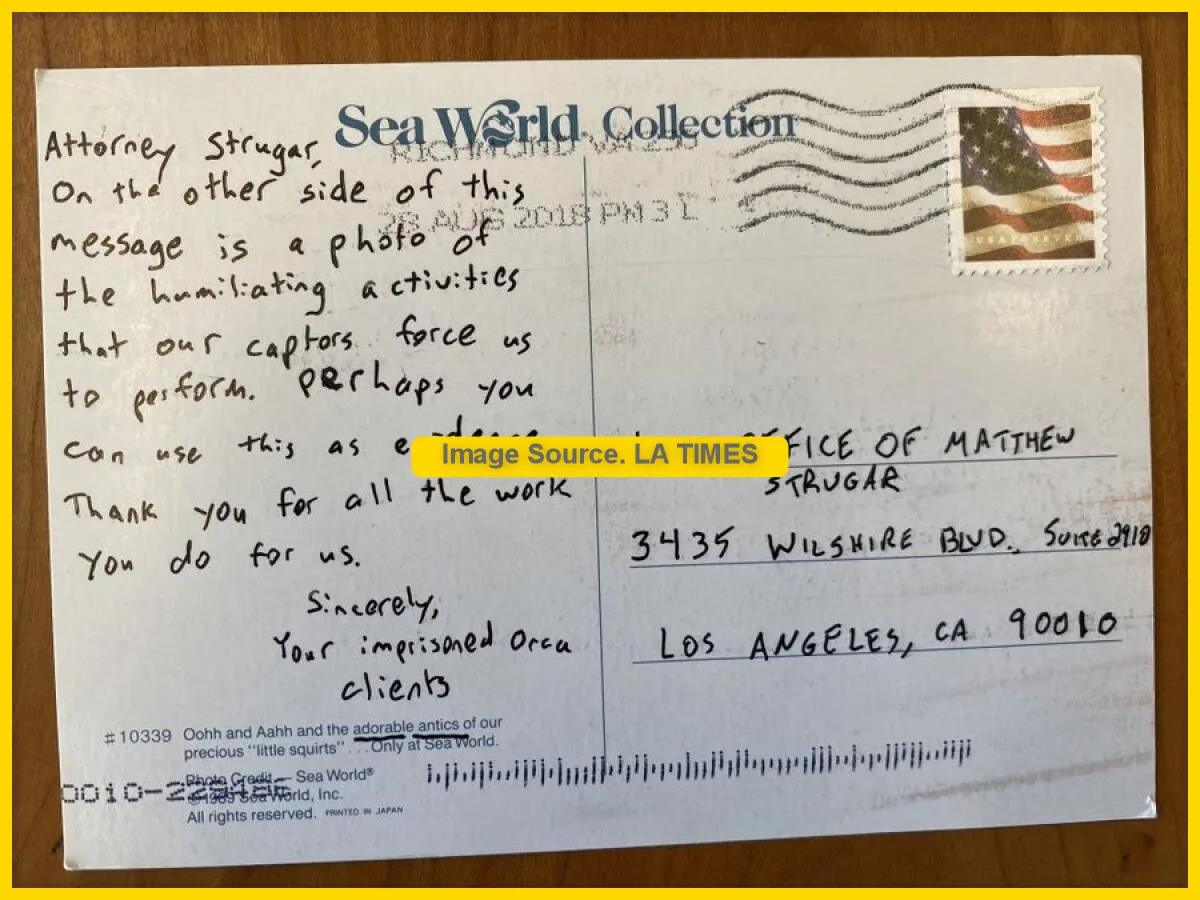 Sea World Collection
RICHMOND VA
28 AUG 2018 PM 3 L
USA FOREVER
Attorney Strugar,
On the other side of this
message is a photo of
the humiliating activities
that our captors force us
to perform. Perhaps you
can use this as
Thank you for all the work
you do for us.
Sincerely,
Your imprisoned orca
clients
Image Source. LA TIMES
OF MATTHEW
STRUGAR
3435 WILSHIRE BLVD., SUITE 2910
LOS ANGELES, CA 90010
#10339 Oohh and Aahh and the adorable antics of our
precious "little squirts" . . . Only at Sea World.
Photo Credit — Sea World®
©1989 Sea World, Inc.
All rights reserved. PRINTED IN JAPAN